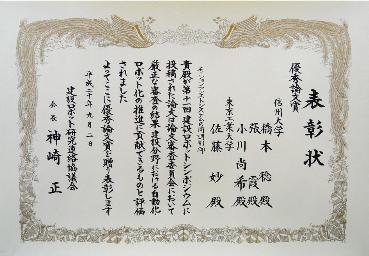 表彰状
優秀論文賞
信州大学
橋本 稔 殿
張 霞 殿
小川 尚希 殿
東京工業大学
佐藤 妙 殿
貴殿が第十一回建設ロボットシンポジウムに
投稿された論文は論文審査委員会において
厳正な審査の結果建設分野における自動化
ロボット化の推進に貢献できるものと評価
されました
よってここに優秀論文賞を贈り表彰します
平成二十年九月二日
建設ロボット研究連絡協議会
会長 神崎 正